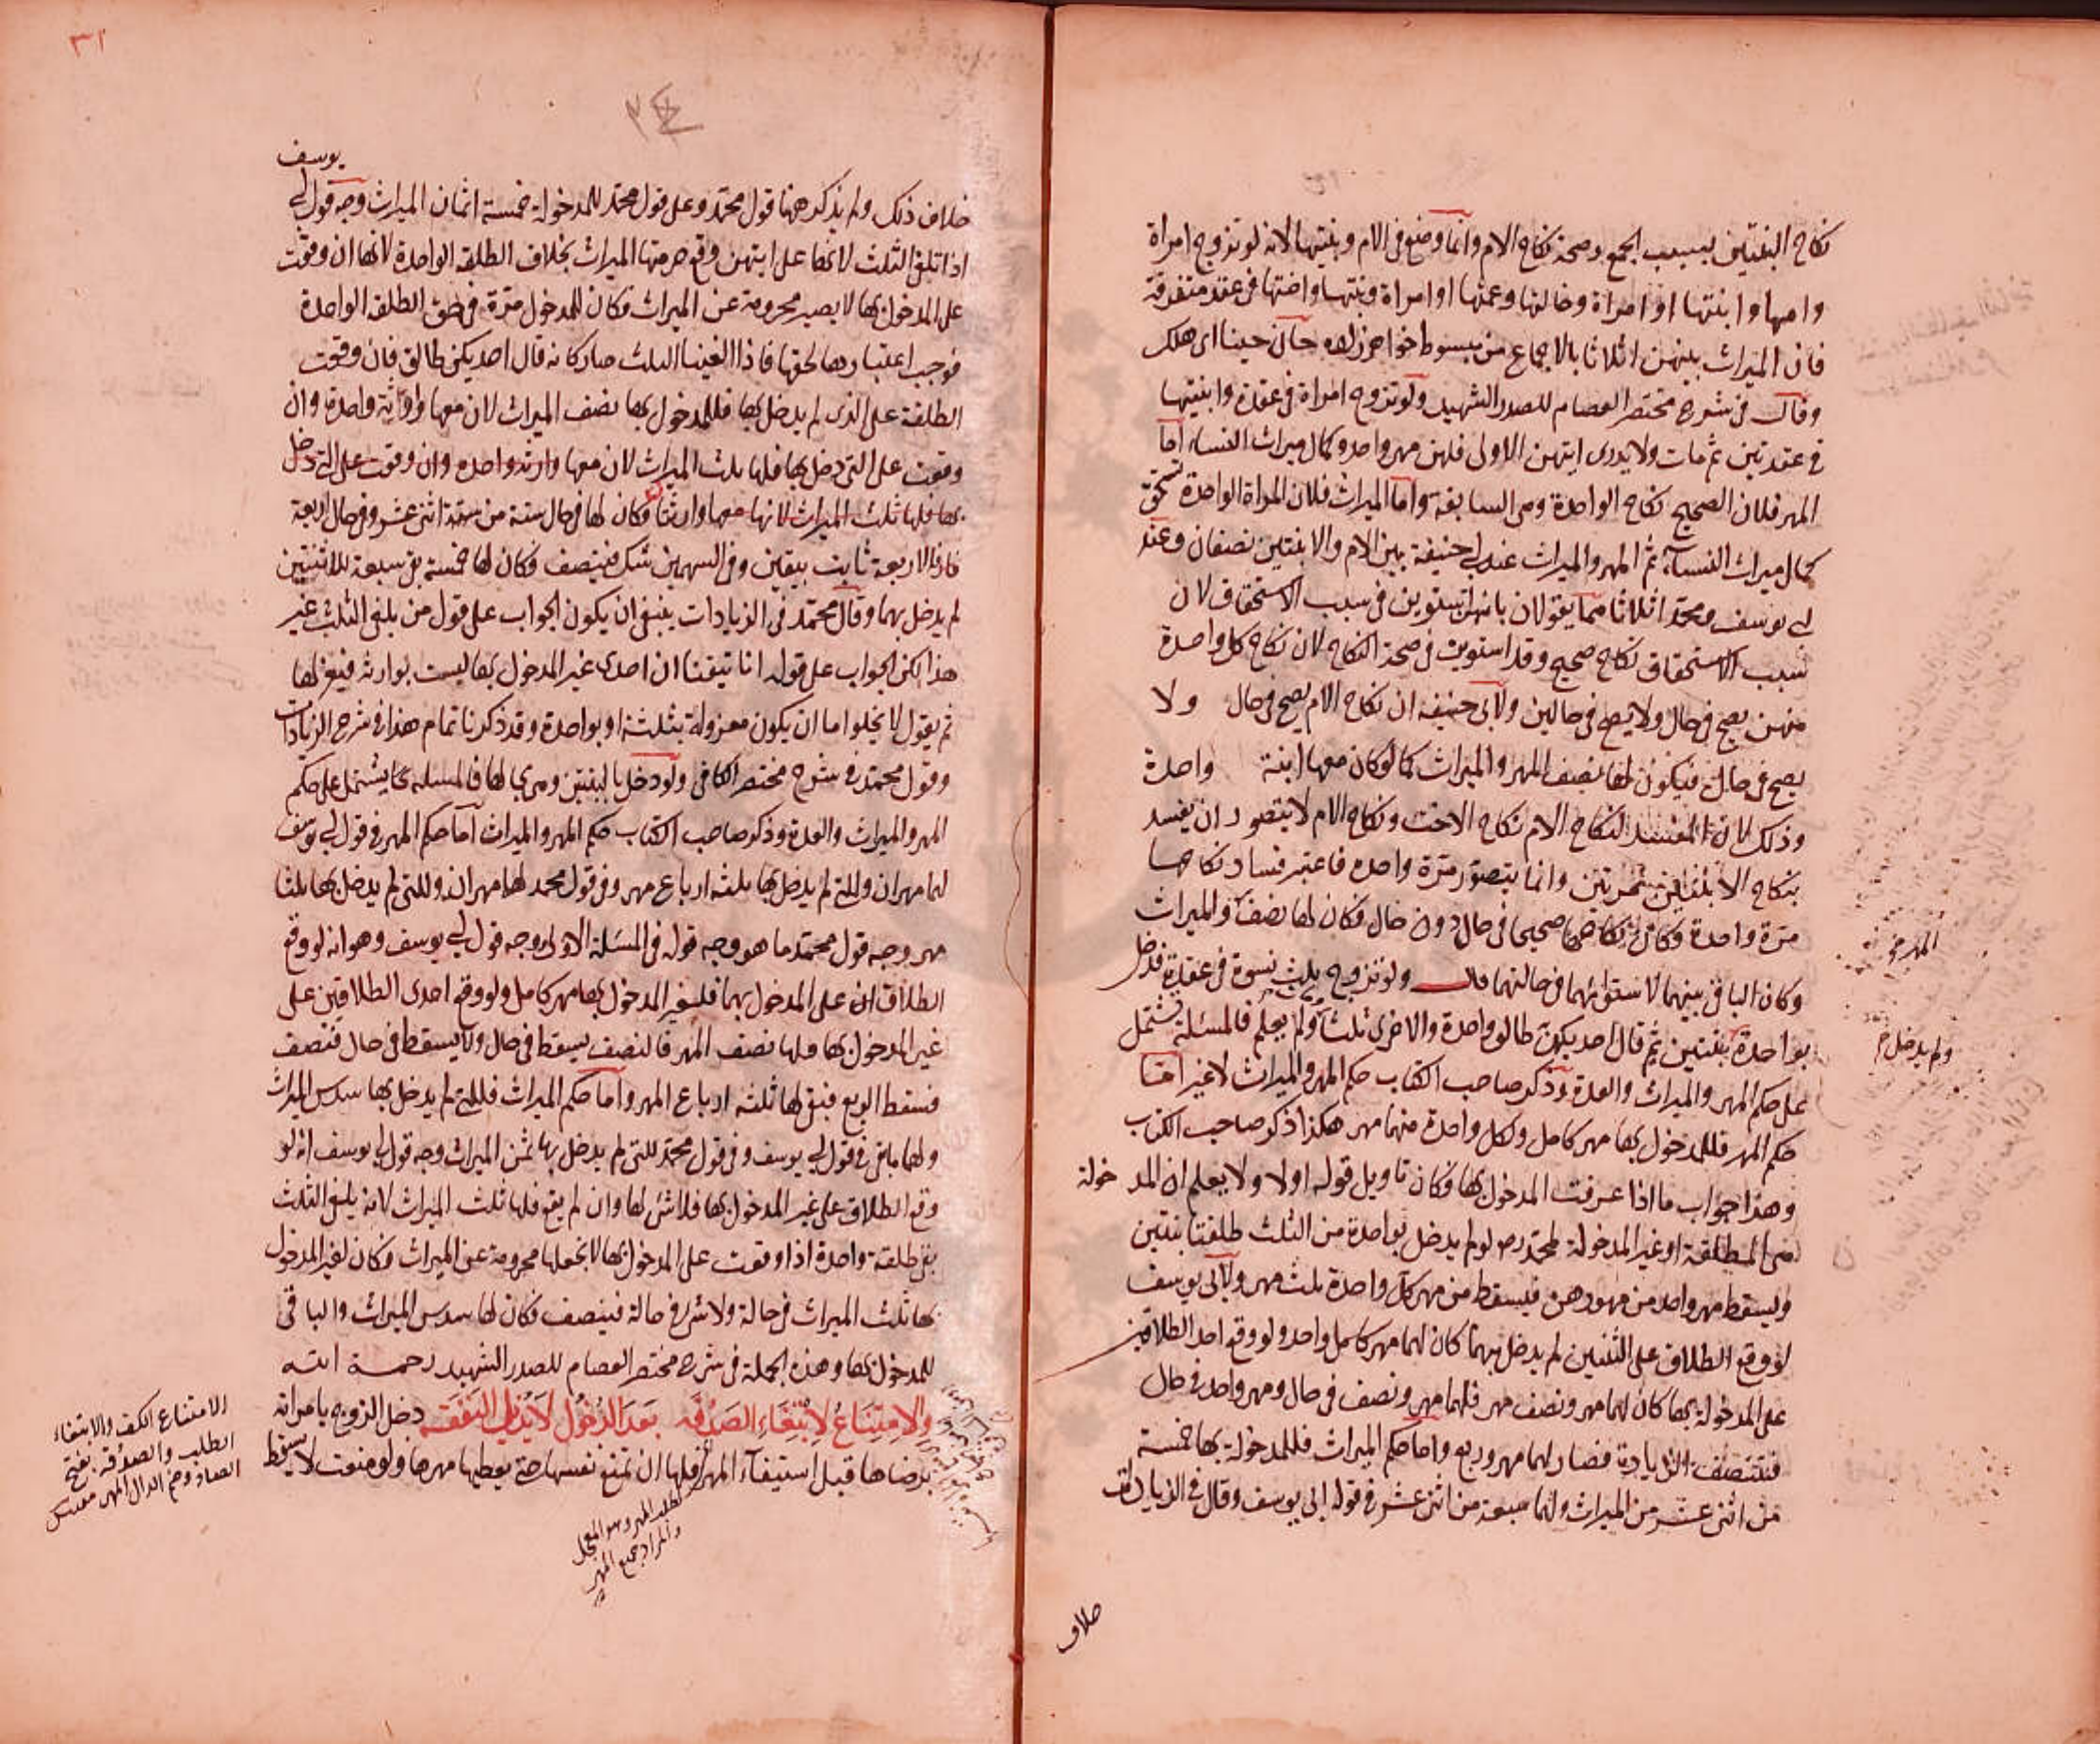 نكاح البنتين بسبب الجمع وصحة نكاح الام وانما وضع في الام وبنتيها لانه لو تزوج امراة
وامها وابنتها او امراة وخالتها وعمتها او امراة وبنتها واختها في عقد متفرقة
فان الميراث بينهن اثلاثا بالاجماع من مبسوط خواهر زاده
وقال في شرح مختصر العصام للصدر الشهيد ولو تزوج امراة في عقدة وابنتيها
في عقدتين ثم مات ولا يدرى ايتهن الاولى فلهن مهر واحد وكمال ميراث النساء اما
المهر فلان الصحيح نكاح الواحدة وهي السابقة واما الميراث فلان المراة الواحدة تستحق
كمال ميراث النسآء ثم المهر والميراث عند ابي حنيفة بين الام والابنتين نصفان وعند
ابي يوسف ومحمد اثلاثا هما يقولان بانهن استوين في سبب الاستحقاق لان
سبب الاستحقاق نكاح صحيح وقد استوين في صحة النكاح لان نكاح كل واحدة
منهن يصح في حال ولا يصح في حالين ولابي حنيفة ان نكاح الام يصح في حال ولا
يصح في حال فيكون لها نصف المهر والميراث كما لو كان معها ابنة واحدة
وذلك لان المفسد لنكاح الام نكاح الاخت ونكاح الام لا يتصور ان يفسد
بنكاح الابنتين مرتين وانما يتصور مرة واحدة فاعتبر فساد نكاحها
مرة واحدة وكان نكاحها صحيحا في حال دون حال فكان لها نصف والميراث
وكان الباقي بينهما لاستوائهما في حالتهما قال ولو تزوج بثلث نسوة في عقدة فدخل
بواحدة بنتين ثم قال احديكن طالق واحدة والاخرى ثلثا ولم يعلم فالمسئلة تشتمل
على حكم المهر والميراث والعدة وذكر صاحب الكتاب حكم المهر والميراث لا غير اما
حكم المهر فللمدخول بها مهر كامل ولكل واحدة منهما مهر هكذا ذكر صاحب الكتاب
وهذا جواب ما اذا عرفت المدخول بها فكان تاويل قوله اولا ولا يعلم ان المدخولة
هي المطلقة او غير المدخولة لمحمد رح لو لم يدخل بواحدة من الثلث طلقتا بنتين
وليسقط مهر واحد من مهورهن فيسقط من مهر كل واحدة ثلث مهر ولابي يوسف
لو وقع الطلاق على الثنتين لم يدخل بهما كان لهما مهر كامل واحد ولو وقع احد الطلاقين
على المدخولة بها كان لهما مهر ونصف مهر فلهما مهر ونصف في حال ومهر واحد في حال
فتنصف الزيادة فصار لهما مهر وربع واما حكم الميراث فللمدخولة بها خمسة
من اثني عشر من الميراث ولهما سبعة من اثني عشر في قول ابي يوسف وقال في الزيادات
المهر صح
ولم يدخل م
خلاف
٣١
يوسف
خلاف ذلك ولم يذكر ههنا قول محمد وعلى قول محمد للمدخولة خمسة اثمان الميراث وجه قول ابي
اذا تلغى الثلث لانها على ايتهن وقع حرمتها الميراث بخلاف الطلقة الواحدة لانها ان وقعت
على المدخول بها لا يصير محرومة عن الميراث فكان للمدخول مرة في حق الطلقة الواحدة
فوجب اعتبارها لحقها فاذا الغينا الثلث صار كانه قال احديكن طالق فان وقعت
الطلقة على الذي لم يدخل بها فللمدخول بها نصف الميراث لان معها وارثة واحدة وان
وقعت على التي دخل بها فلها ثلث الميراث لان معها وارثة واحدة وان وقعت على التي دخل
بها فلها ثلث الميراث لانها معها وارثتا فكان لها في حال ستة من ستة اثني عشر وفي حال اربعة
فاذا الاربعة ثابت بيقين وفي السهمين شك فينتصف فكان لها خمسة بقي سبعة للاثنتين
لم يدخل بهما وقال محمد في الزيادات ينبغي ان يكون الجواب على قول من يلغي الثلث غير
هذا لكن الجواب على قوله انا تيقنا ان احدى غير المدخول بها ليست بوارثة فيلغو لها
ثم يقول لا يخلو اما ان يكون معزولة بثلثة او بواحدة وقد ذكرنا تمام هذا في شرح الزيادات
وقول محمد في شرح مختصر الكافي ولو دخل بالبنتين وهي بحالها فالمسئلة كما يشتمل على حكم
المهر والميراث والعدة وذكر صاحب الكتاب حكم المهر والميراث اما حكم المهر في قول ابي يوسف
لهما مهران وللتي لم يدخل بها ثلثة ارباع مهر وفي قول محمد لهما مهران وللتي لم يدخل بها ثلثا
مهر وجه قول محمد ما هو وجه قوله في المسئلة الاولى وجه قول ابي يوسف وهو انه لو وقع
الطلاقان على المدخول بهما فلغير المدخول بها مهر كامل ولو وقع احدى الطلاقين على
غير المدخول بها فلها نصف المهر فالنصف يسقط في حال ولا يسقط في حال فتنصف
فسقط الربع فبقي لها ثلثة ارباع المهر واما حكم الميراث فللتي لم يدخل بها سدس الميراث
ولهما ما بقي في قول ابي يوسف وفي قول محمد للتي لم يدخل بها ثمن الميراث وجه قول ابي يوسف انه لو
وقع الطلاق على غير المدخول بها فلا شئ لها وان لم يقع فلها ثلث الميراث لانه يلغى الثلث
بقي طلقة واحدة اذا وقعت على المدخول بها لا نجعلها محرومة عن الميراث وكان لغير المدخول
بها ثلث الميراث في حالة ولا شئ في حالة فينصف فكان لها سدس الميراث والباقي
للمدخول بها وهذه الجملة في شرح مختصر العصام للصدر الشهيد رحمة الله
والامتناع لابتغاء الصدقة بعد الدخول لا يزيل النفقة دخل الزوج بامراته
برضاها قبل استيفآء المهر فلها ان تمنع نفسها حتى يعطيها مهرها ولو منعت لا يسقط
الامتناع الكف والابتغاء
الطلب والصدقة بفتح
الصاد وضم الدال المهر
لطلب المهر وهو المعجل
والمراد جميع المهر